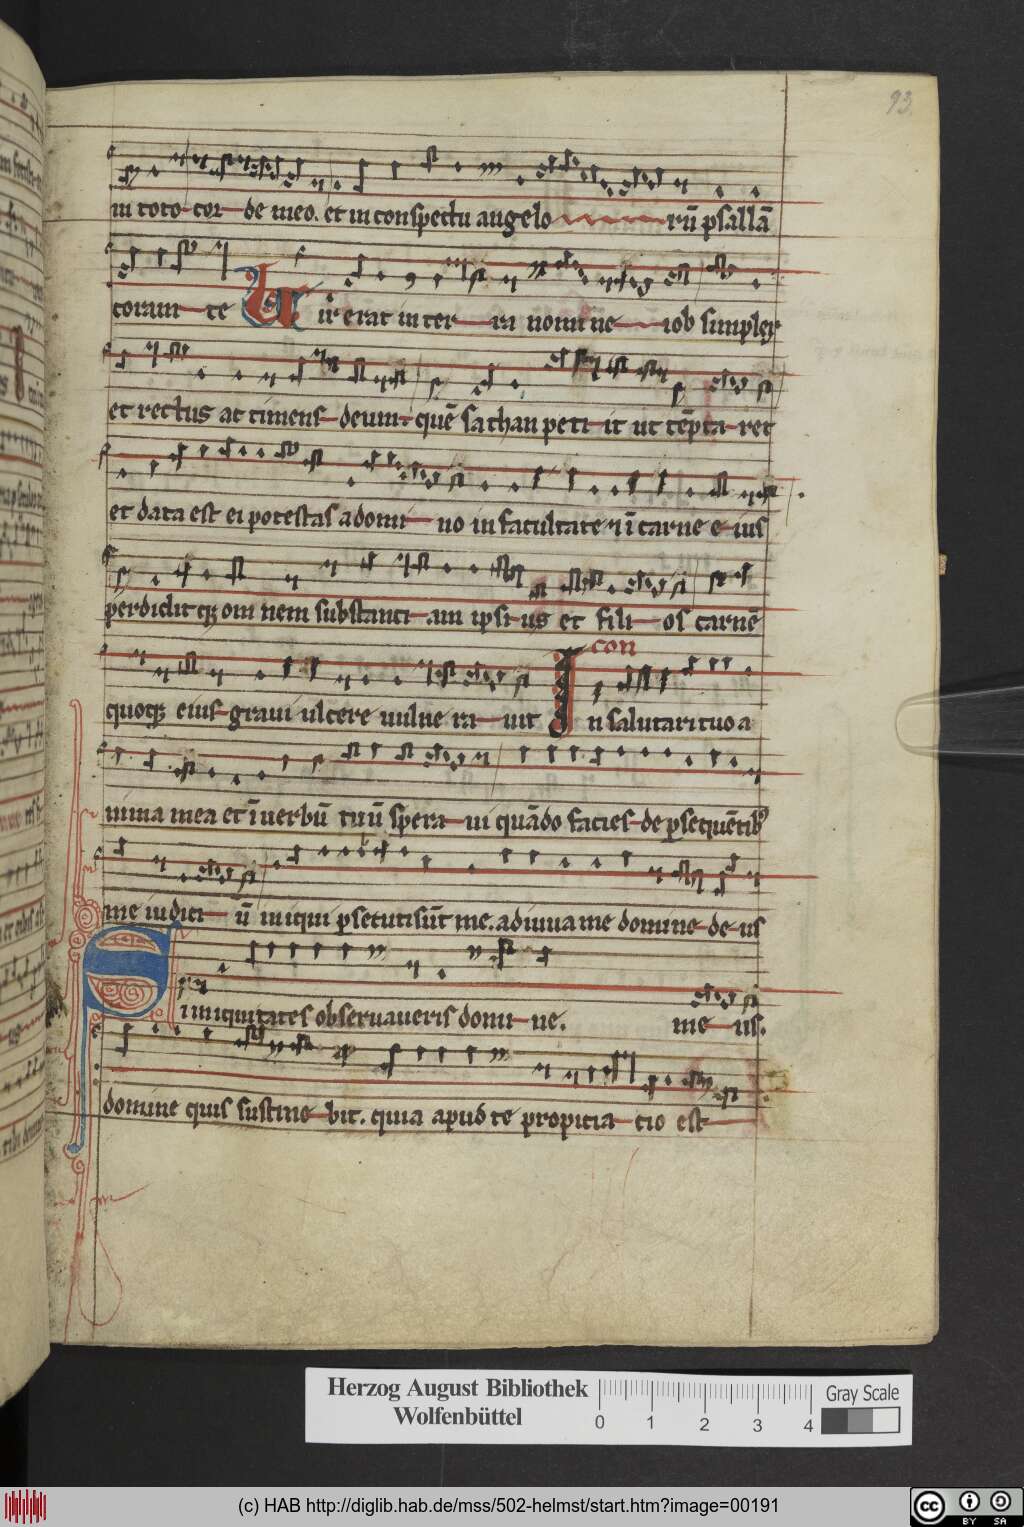 93.
in toto cor de meo. et in conspectu angelo rū psallā
coram te Uir erat in ter ra nomi ne iob simplex
et rectus ac timens deum quē sathan peti it ut tēpta ret
et data est ei potestas a domi no in facultate ⁊ ī carne e ius
perdiditqꝫ om nem substanci am ipsi us et fili os carnē
con
quoqꝫ eius graui ulcere uulne ra uit In salutari tuo a
nima mea et ī uerbū tuū spera ui quādo facies de ꝑsequētibꝰ
me iudici ū iniqui ꝑsecuti sūt me. adiuua me domine de us
Si iniquitates obseruaueris domi ne. me us.
domine quis sustine bit. quia apud te propicia cio est
Herzog August Bibliothek
Wolfenbüttel
0 1 2 3 4
Gray Scale
(c) HAB http://diglib.hab.de/mss/502-helmst/start.htm?image=00191
cc BY SA